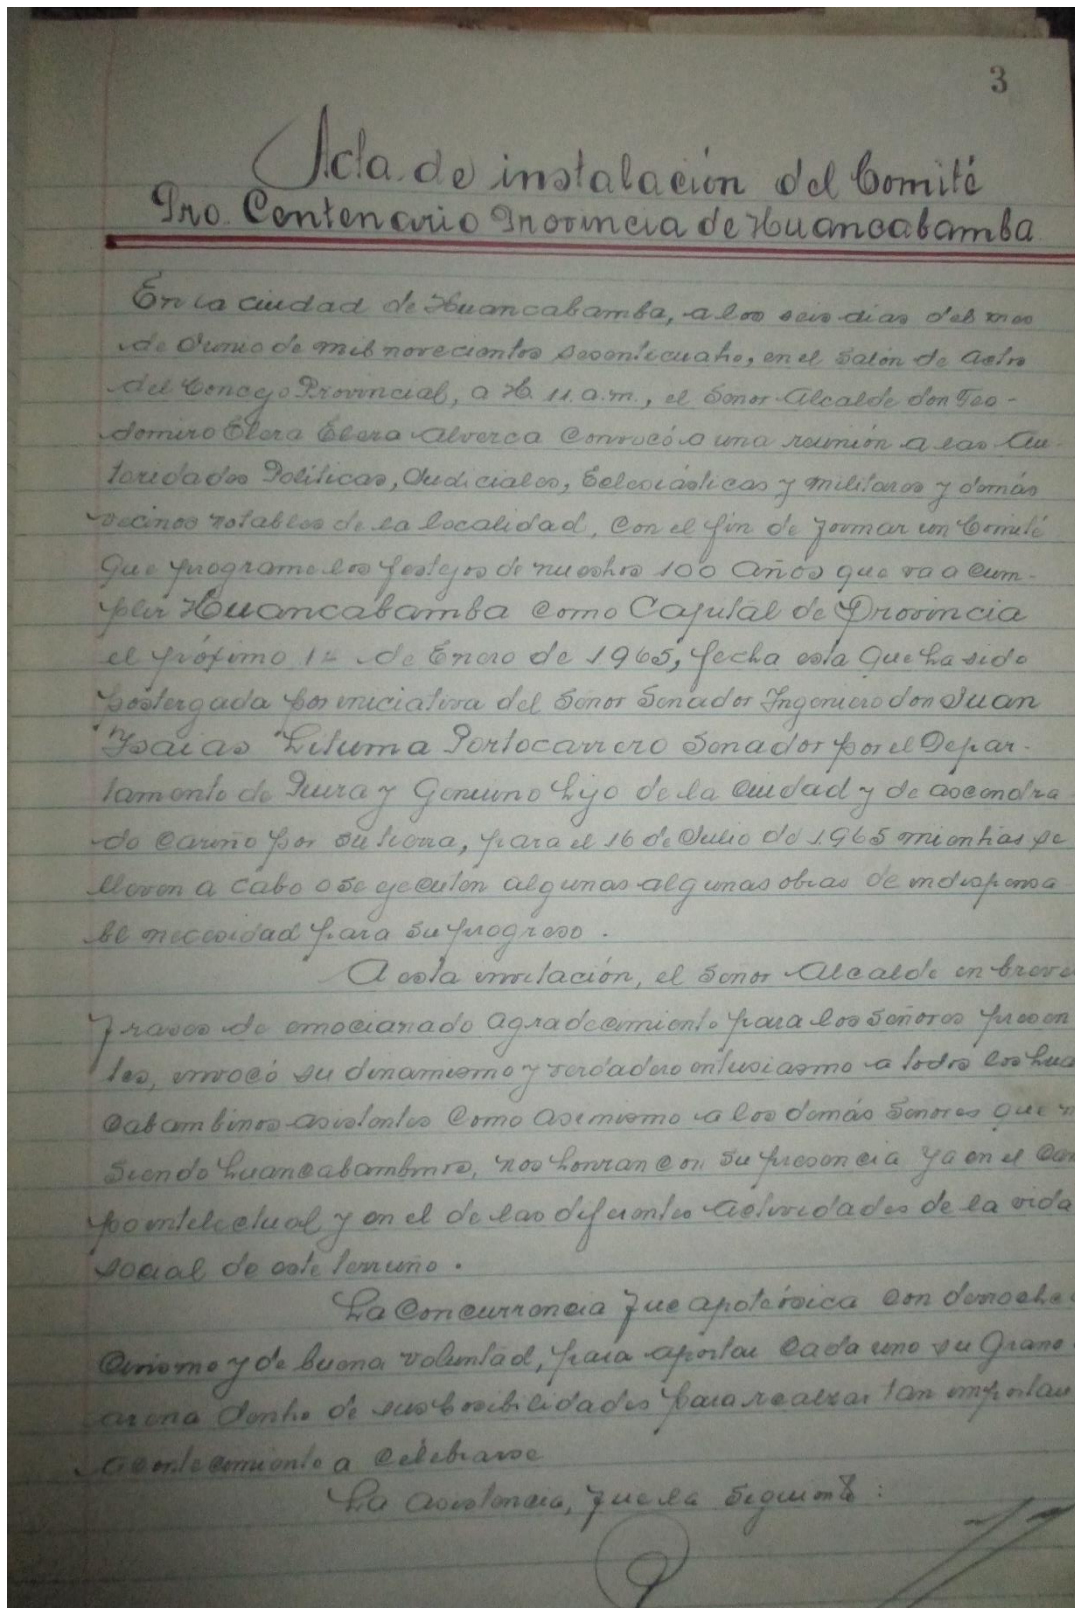 3
Acta de instalación del Comité
Pro. Centenario Provincia de Huancabamba
En la ciudad de Huancabamba, a los seis dias del mes
de Junio de mil novecientos sesenticuatro, en el Salón de Actos
del Concejo Provincial, a H. 11. a.m., el Señor Alcalde don Teo-
domiro Elera Elera Alverca Convocó a una reunión a las Au-
toridades Políticas, Judiciales, Eclesiásticas y militares y demás
vecinos notables de la localidad, Con el fin de formar un Comité
que programe los festejos de nuestros 100 años que va a Cum-
plir Huancabamba Como Capital de Provincia
el próximo 14 de Enero de 1965, fecha esta que ha sido
postergada por iniciativa del Señor Senador Ingeniero don Juan
Isaias Lituma Portocarrero Senador por el Depar-
tamento de Piura y Genuino hijo de la Ciudad y de acendra
do Cariño por su tierra, para el 16 de Julio de 1.965 mientras se
lleven a Cabo o se ejecuten algunas algunas obras de indispensa
ble necesidad para su progreso.
A esta invitación, el Señor Alcalde en breve
frases de emocianado agradecimiento para los Señores presen
tes, invocó su dinamismo y verdadero entusiasmo a todos los hua
cabambinos asistentes Como asimismo a los demás Señores que n
siendo huancabambinos, nos honran Con su presencia ya en el Cam
po intelectual y en el de las diferentes actividades de la vida
social de este terruño.
La Concurrencia fue apoteósica Con derroche
Civismo y de buena voluntad, para aportar Cada uno su Grano
arena dentro de sus posibilidades para realzar tan importan
acontecimiento a Celebrarse
La asistencia, fue la Siguiente: